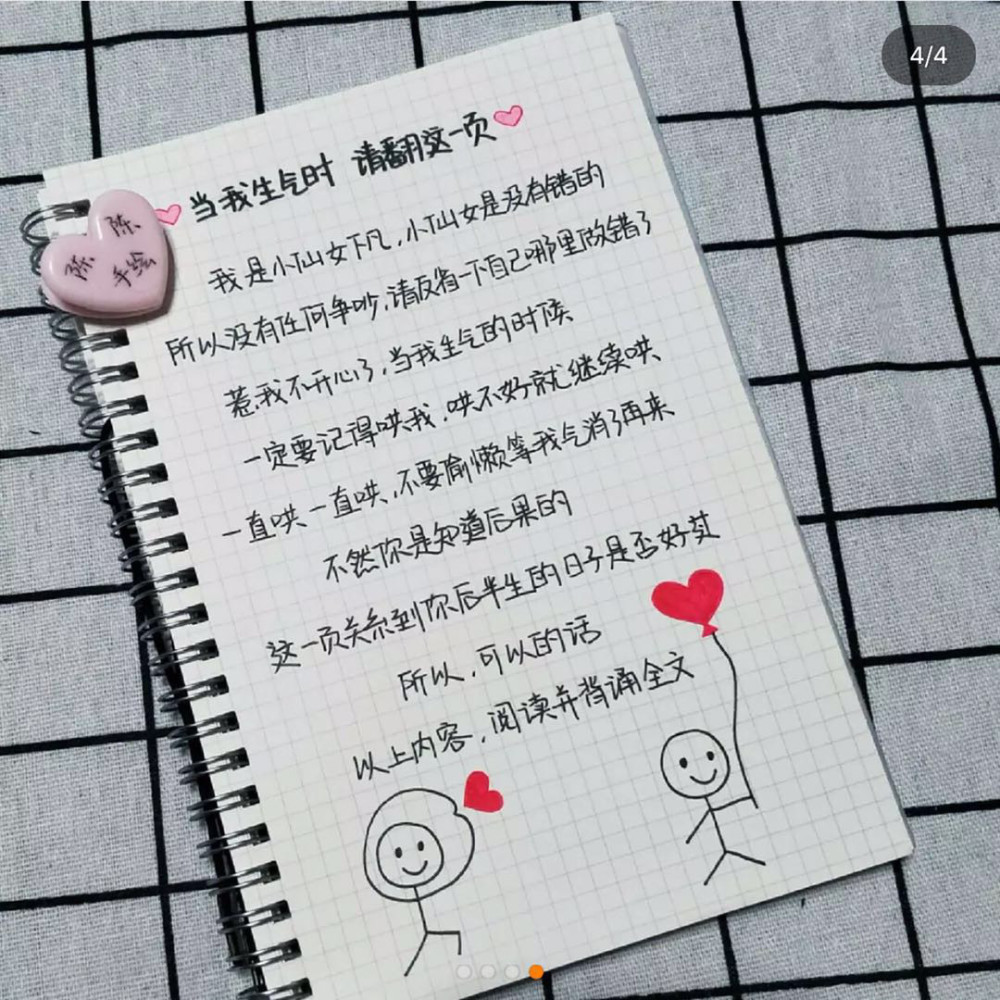 4/4
当我生气时 请翻这一页
陈
陈
手绘
我是小仙女下凡,小仙女是没有错的
所以没有任何争吵,请反省一下自己哪里做错了
惹我不开心了,当我生气的时候
一定要记得哄我,哄不好就继续哄
一直哄一直哄,不要偷懒等我气消了再来
不然你是知道后果的
这一页关系到你后半生的日子是否好过
所以,可以的话
以上内容,阅读并背诵全文